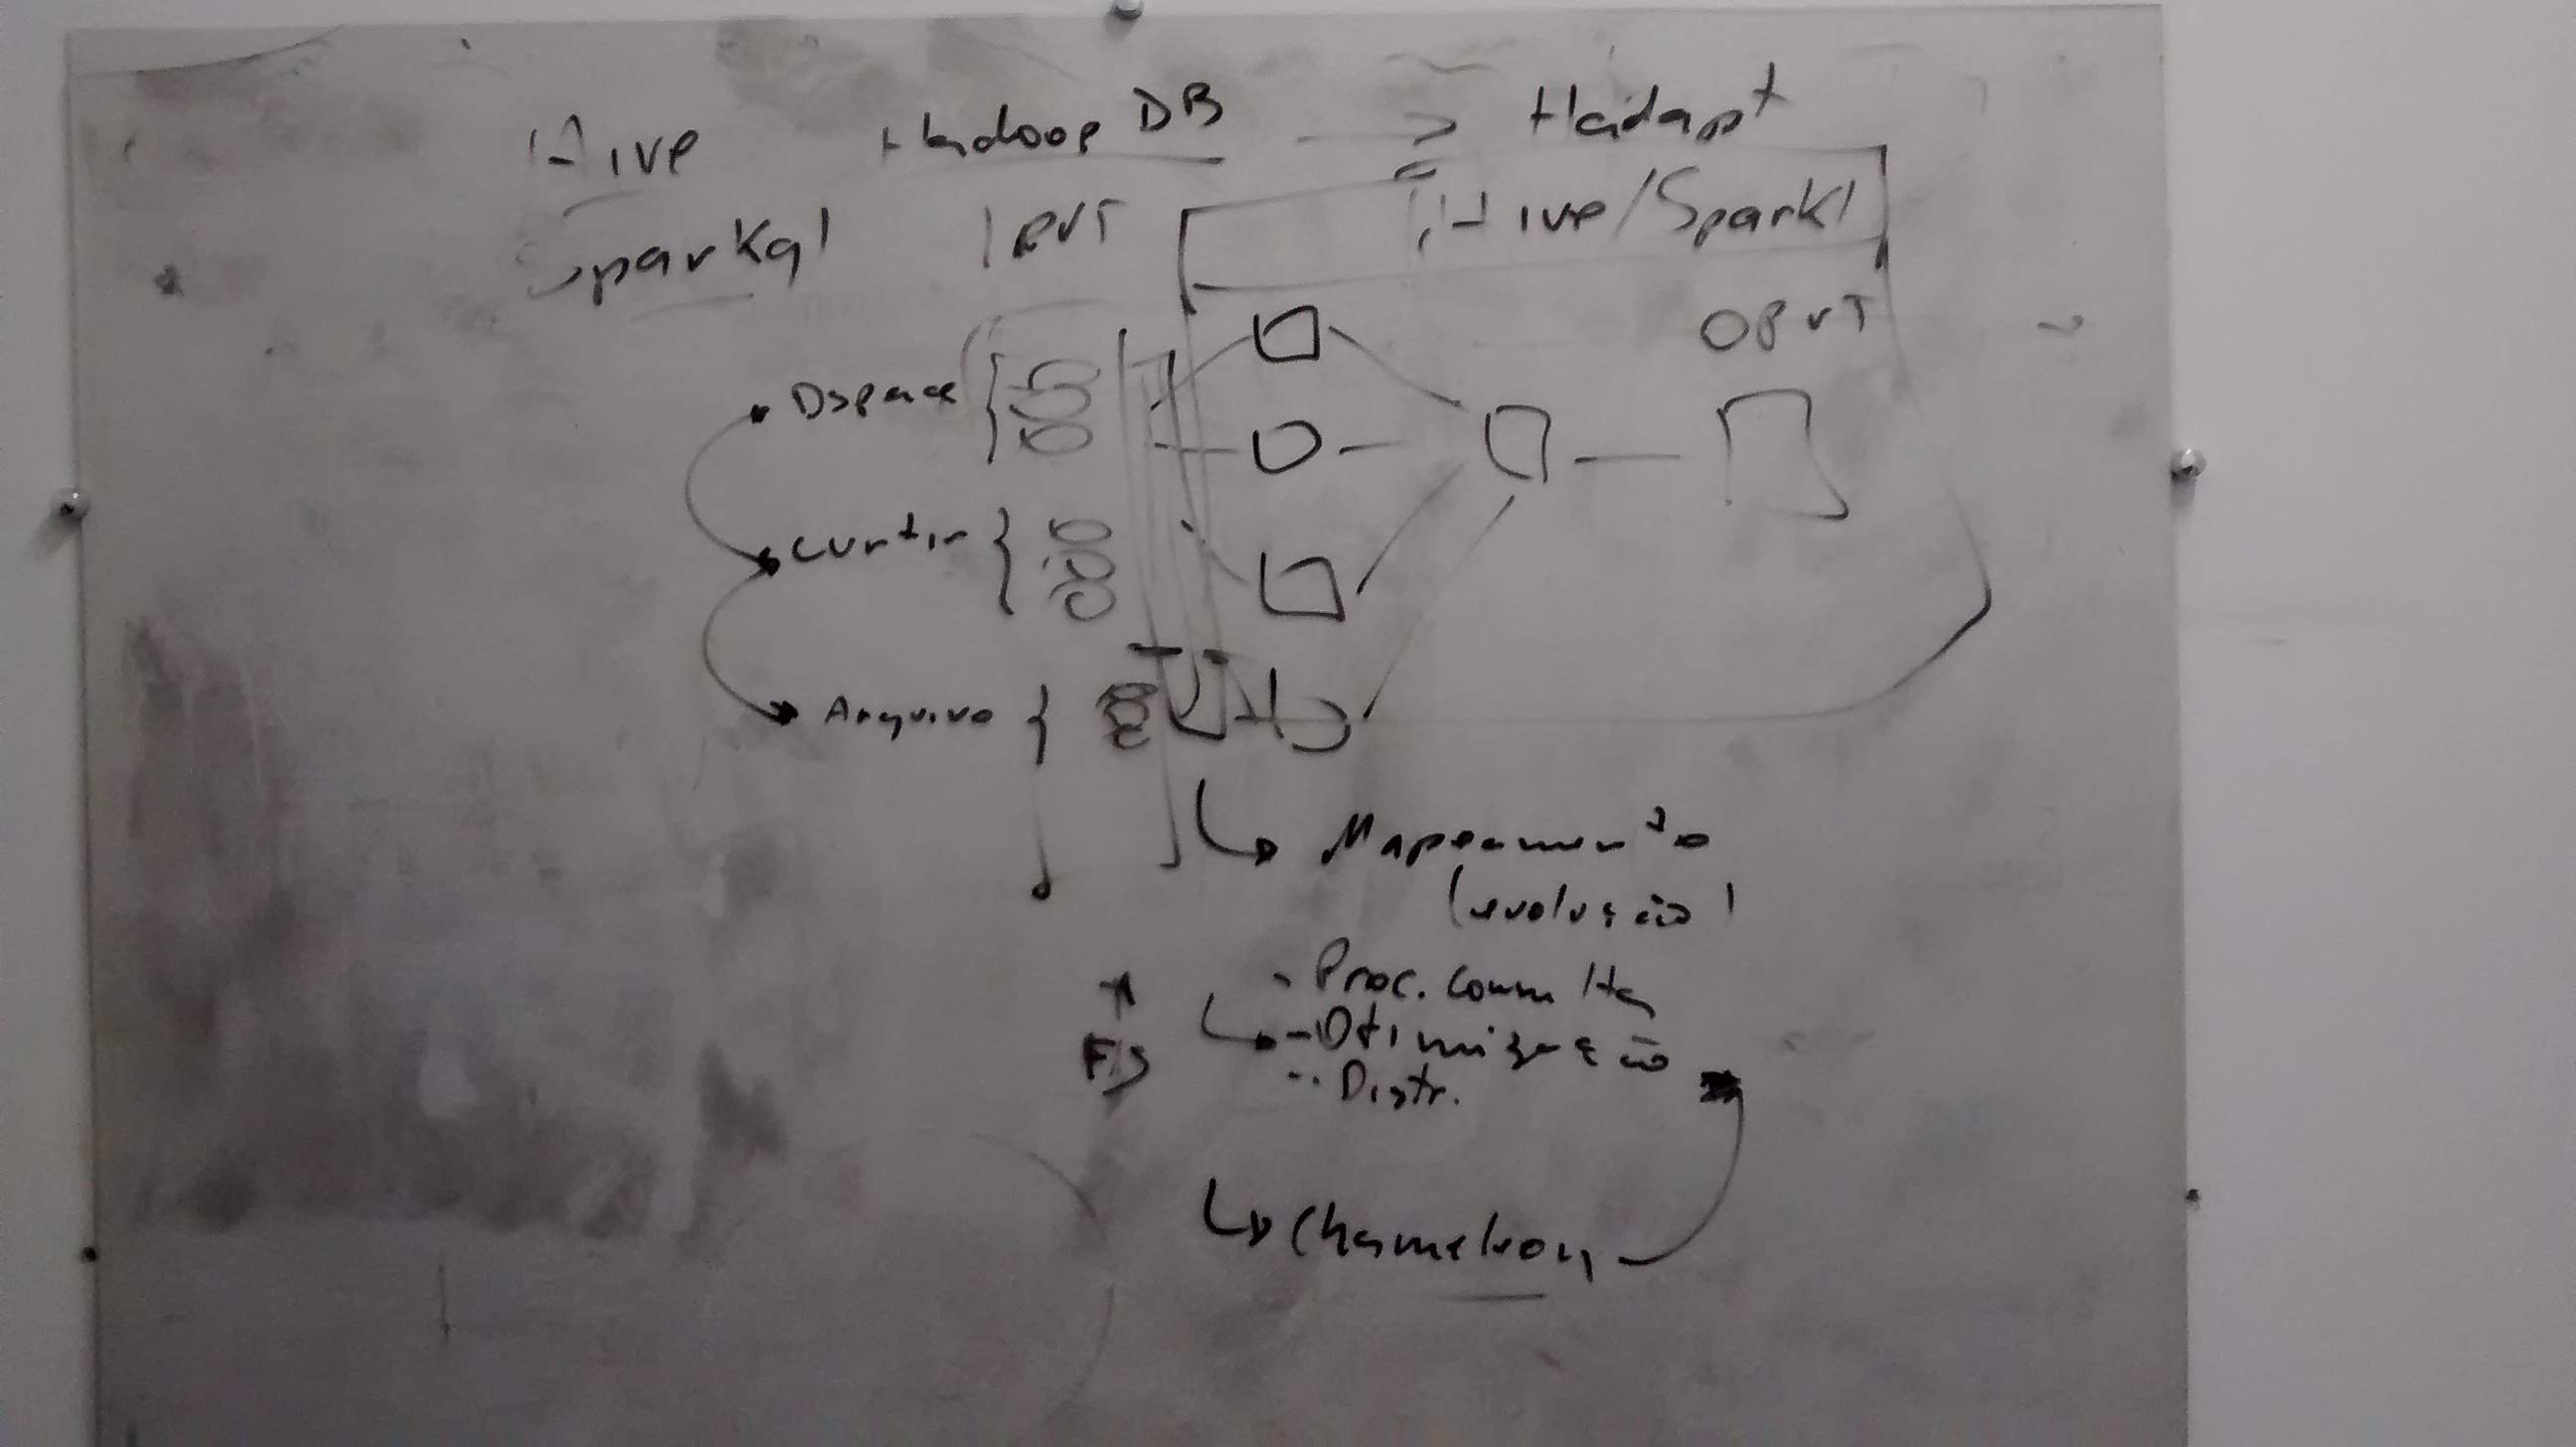 Hive HadoopDB → Hadapt
Sparkql IRVT Hive/Sparkl
OBVT
Dspace {
Curtir {
Arquivo {
Mapeamento
(evolução)
- Proc. Consulta
- Otimização
- Distr.
FS
Chameleon